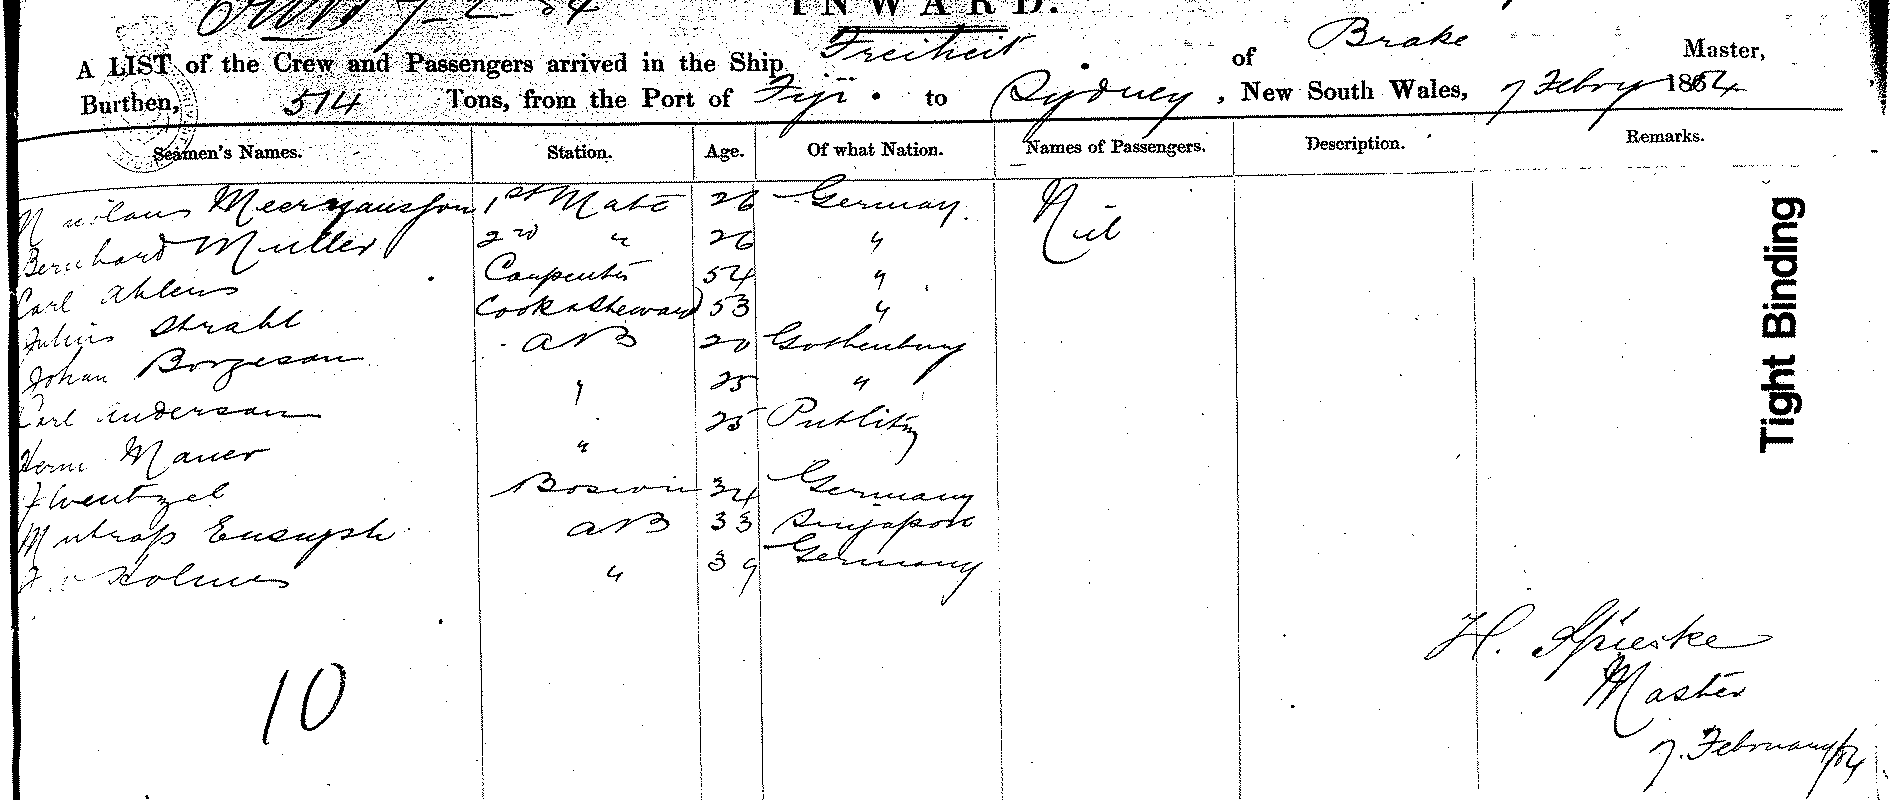 7-2-84
INWARD.
A LIST of the Crew and Passengers arrived in the Ship Freiheit of Brake Master,
Burthen, 514 Tons, from the Port of Fiji to Sydney, New South Wales, 7 Febry 1884
Seamen's Names. Station. Age. Of what Nation. Names of Passengers. Description. Remarks.
1st Mate 26 Germany. Nil
Bernhard Muller 2nd " 26 "
Carl Ahlers Carpenter 54 "
Julius Strahl Cook & Steward 53 "
Johan Borgeson AB 20 Gothenburg
Carl Anderson " 25 "
Herm Maner " 25 Putlitz
Wentzel Boswin 34 Germany
AB 33 Singapore
Holmes " 39 Germany
10
H. Spieske
Master
7. February/84
Tight Binding